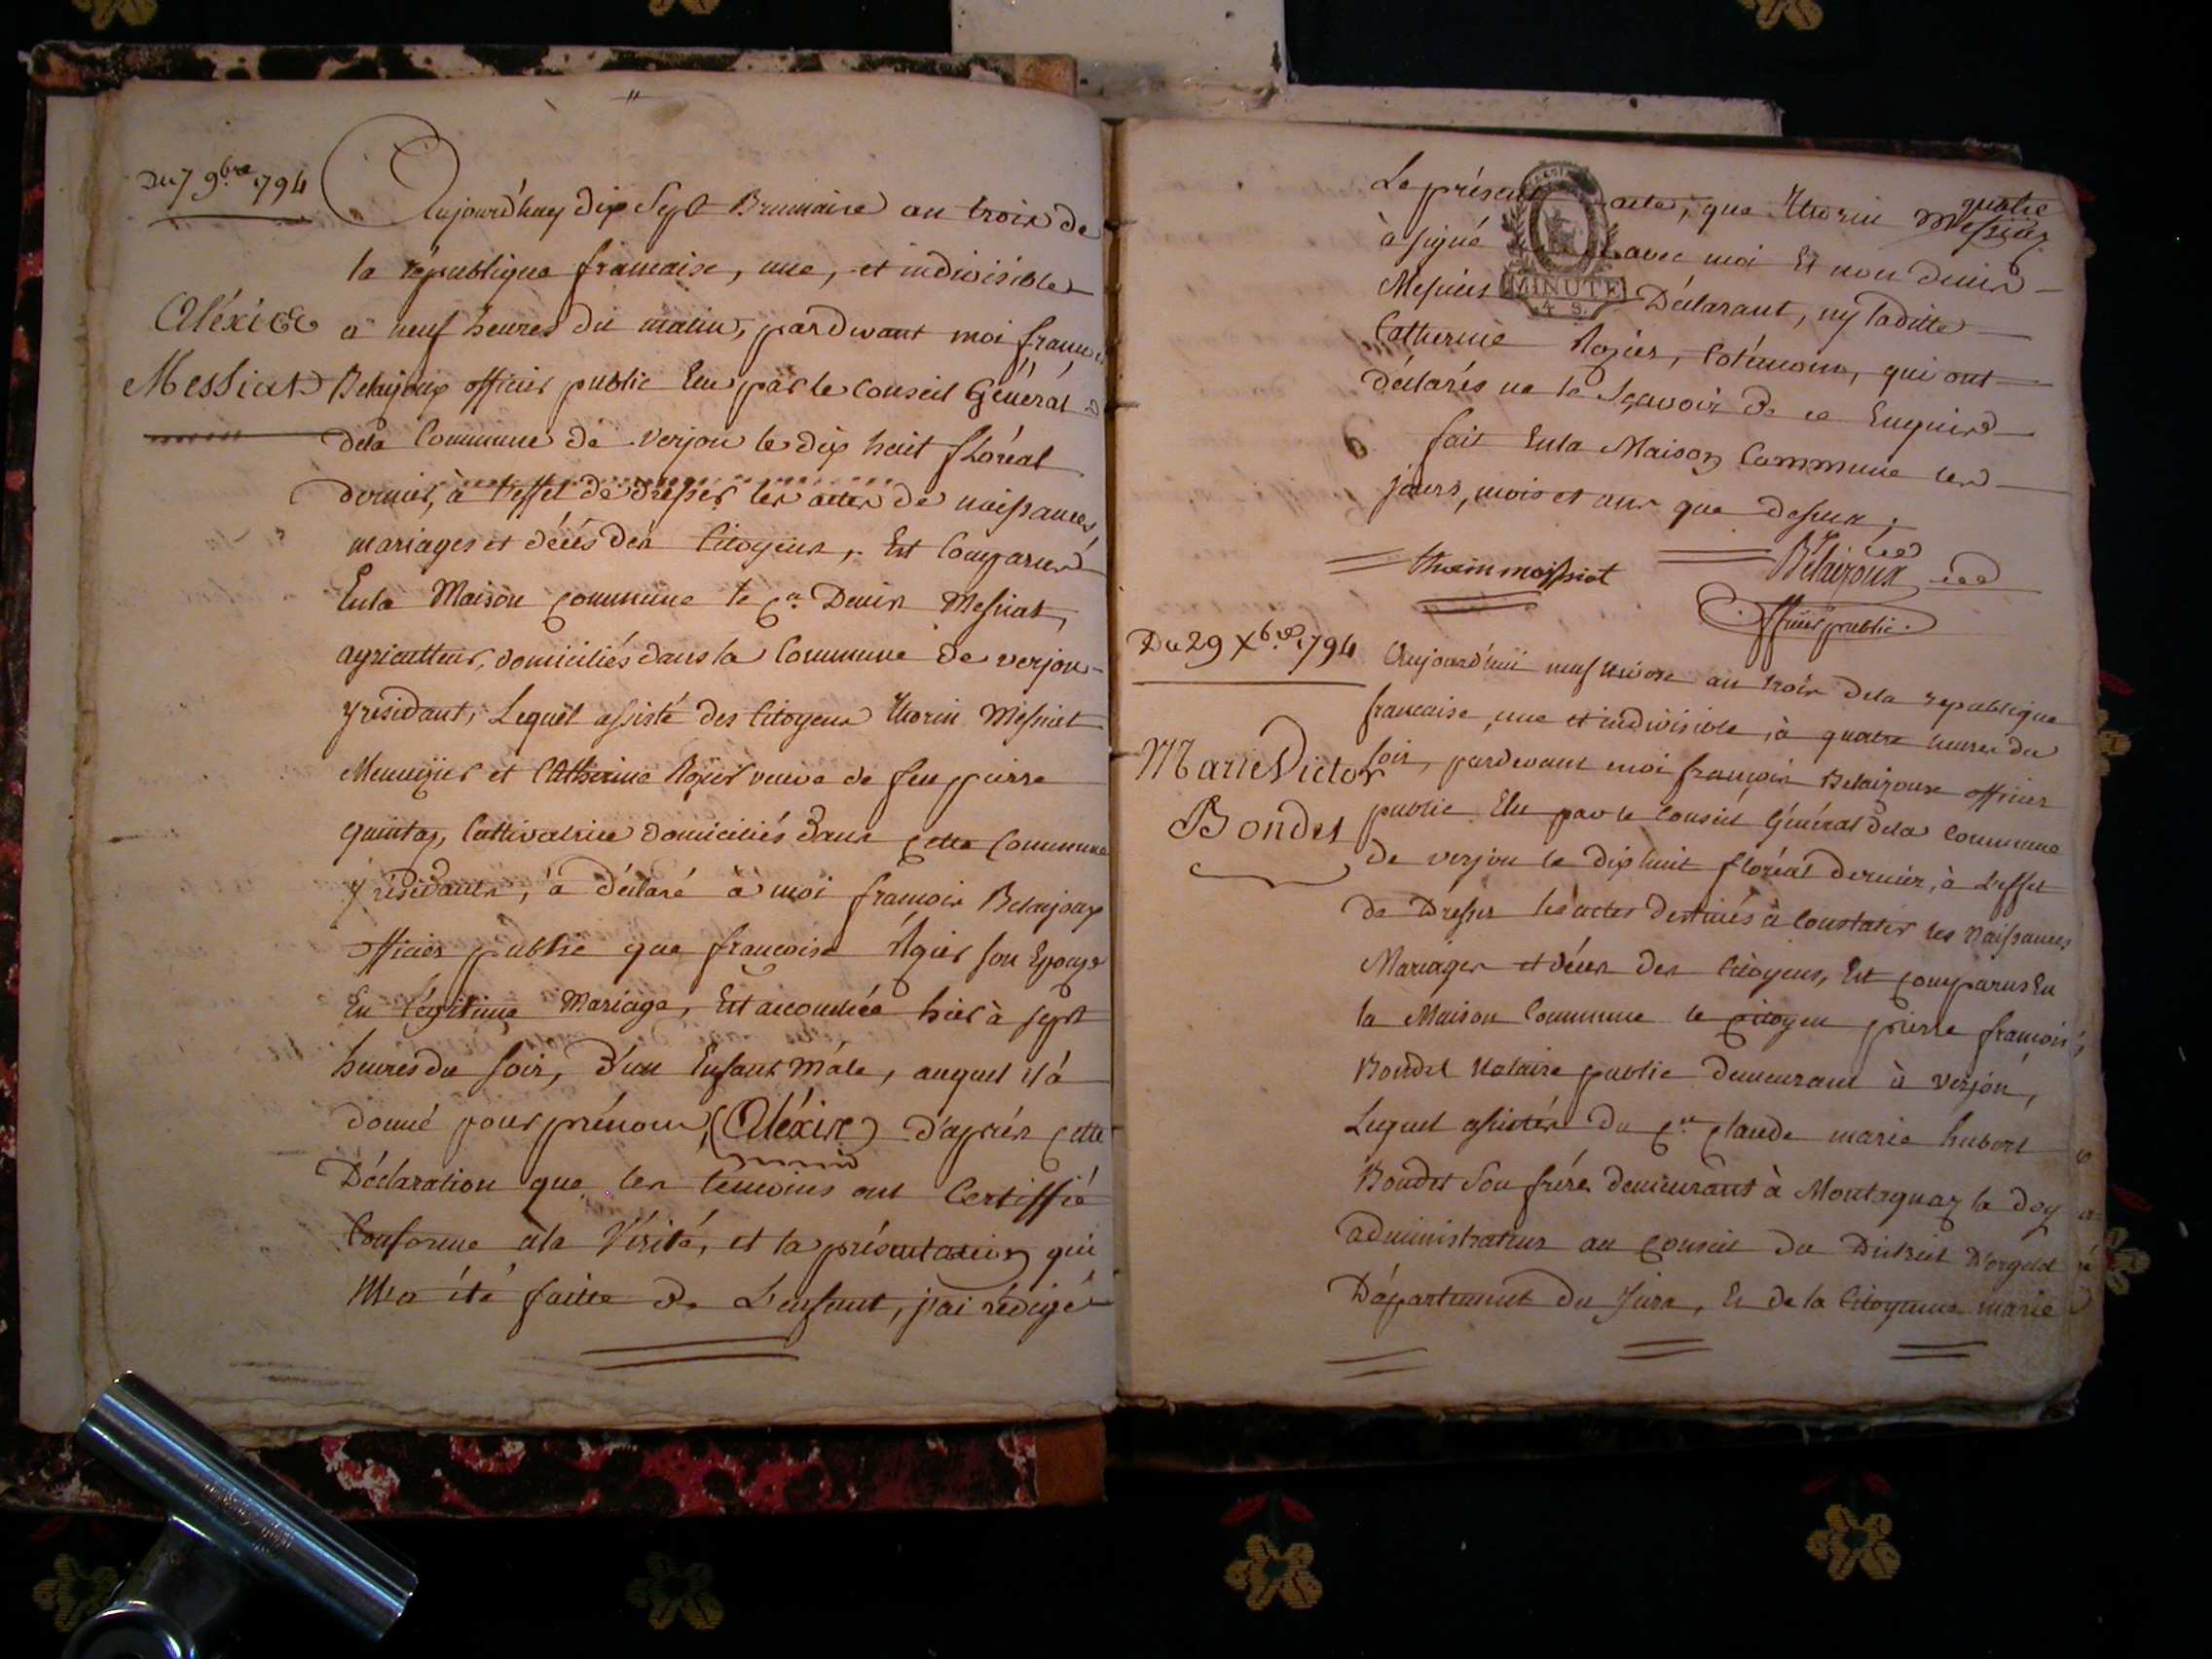 Du 7 9bre 1794
Aujourdhuy dix Sept Brumaire an trois de
la république francaise, une, et indivisible
Aléxice
à neuf heures du matin, pardevant moi francois
Messiat
Belaijoux officier public Elu par le Conseil Général
dela Commune de verjon le dix huit floréal
dernier, à l'effet de dresser les actes de naissances,
mariages et décés des Citoyens, Est Comparu
En la Maison Commune le Cn. Denis Messiat,
agriculteur, domiciliés dans la Commune de verjon
y residant, Lequel assisté des Citoyens Thorin Messiat
Menuzier et Catherine Rogier veuve de feu pierre
quintaz, Cultivatrice domiciliés dans cette Commune
y résidants, à déclaré à moi francois Belaijoux
officier public que francoise Rogier son Epouse
En légitime Mariage, Est accouchée hier à sept
heures du soir, d'un Enfant mâle, auquel il à
donné pour prénom, (Aléxix) d'après cette
Déclaration que les temoins ont Certiffié
Conforme àla Vérité, et la présentation qui
M'a été faitte de L'enfant, j'ai rédigé
Le présent acte, que Thorin Messiat
à signé avec moi Et non denis
MINUTE
4 S.
Messiat Déclarant, ny laditte
Catherine Rogier, Cotémoin, qui ont
déclarés ne le Sçavoir de ce Enquis
fait En la Maison Commune les
jours, mois et an que dessus;
Belaijoux
officier public.
Du 29 Xbre 1794
Aujourd'hui neuf Nivose an trois dela republique
francaise, une et indivisible, à quatre heures du
Marie Victor
soir, pardevant moi françois Belaijoux officier
Bondet
public Elu par le Conseil Général dela Commune
de verjon le dix huit floréal dernier, à L'effet
de Dresser les actes destinés à Constater les Naissances
Mariages et décès des Citoyens, Est Comparus En
la Maison Commune le Citoyen pierre francois
Bondet Notaire public demeurant à verjon,
Lequel assistés du Cn Claude marie hubert
Bondet Son frére demeurant à Montagnaz le
administrateur au Conseil du District D'orgelet
Département du Jura, Et de la Citoyenne marie